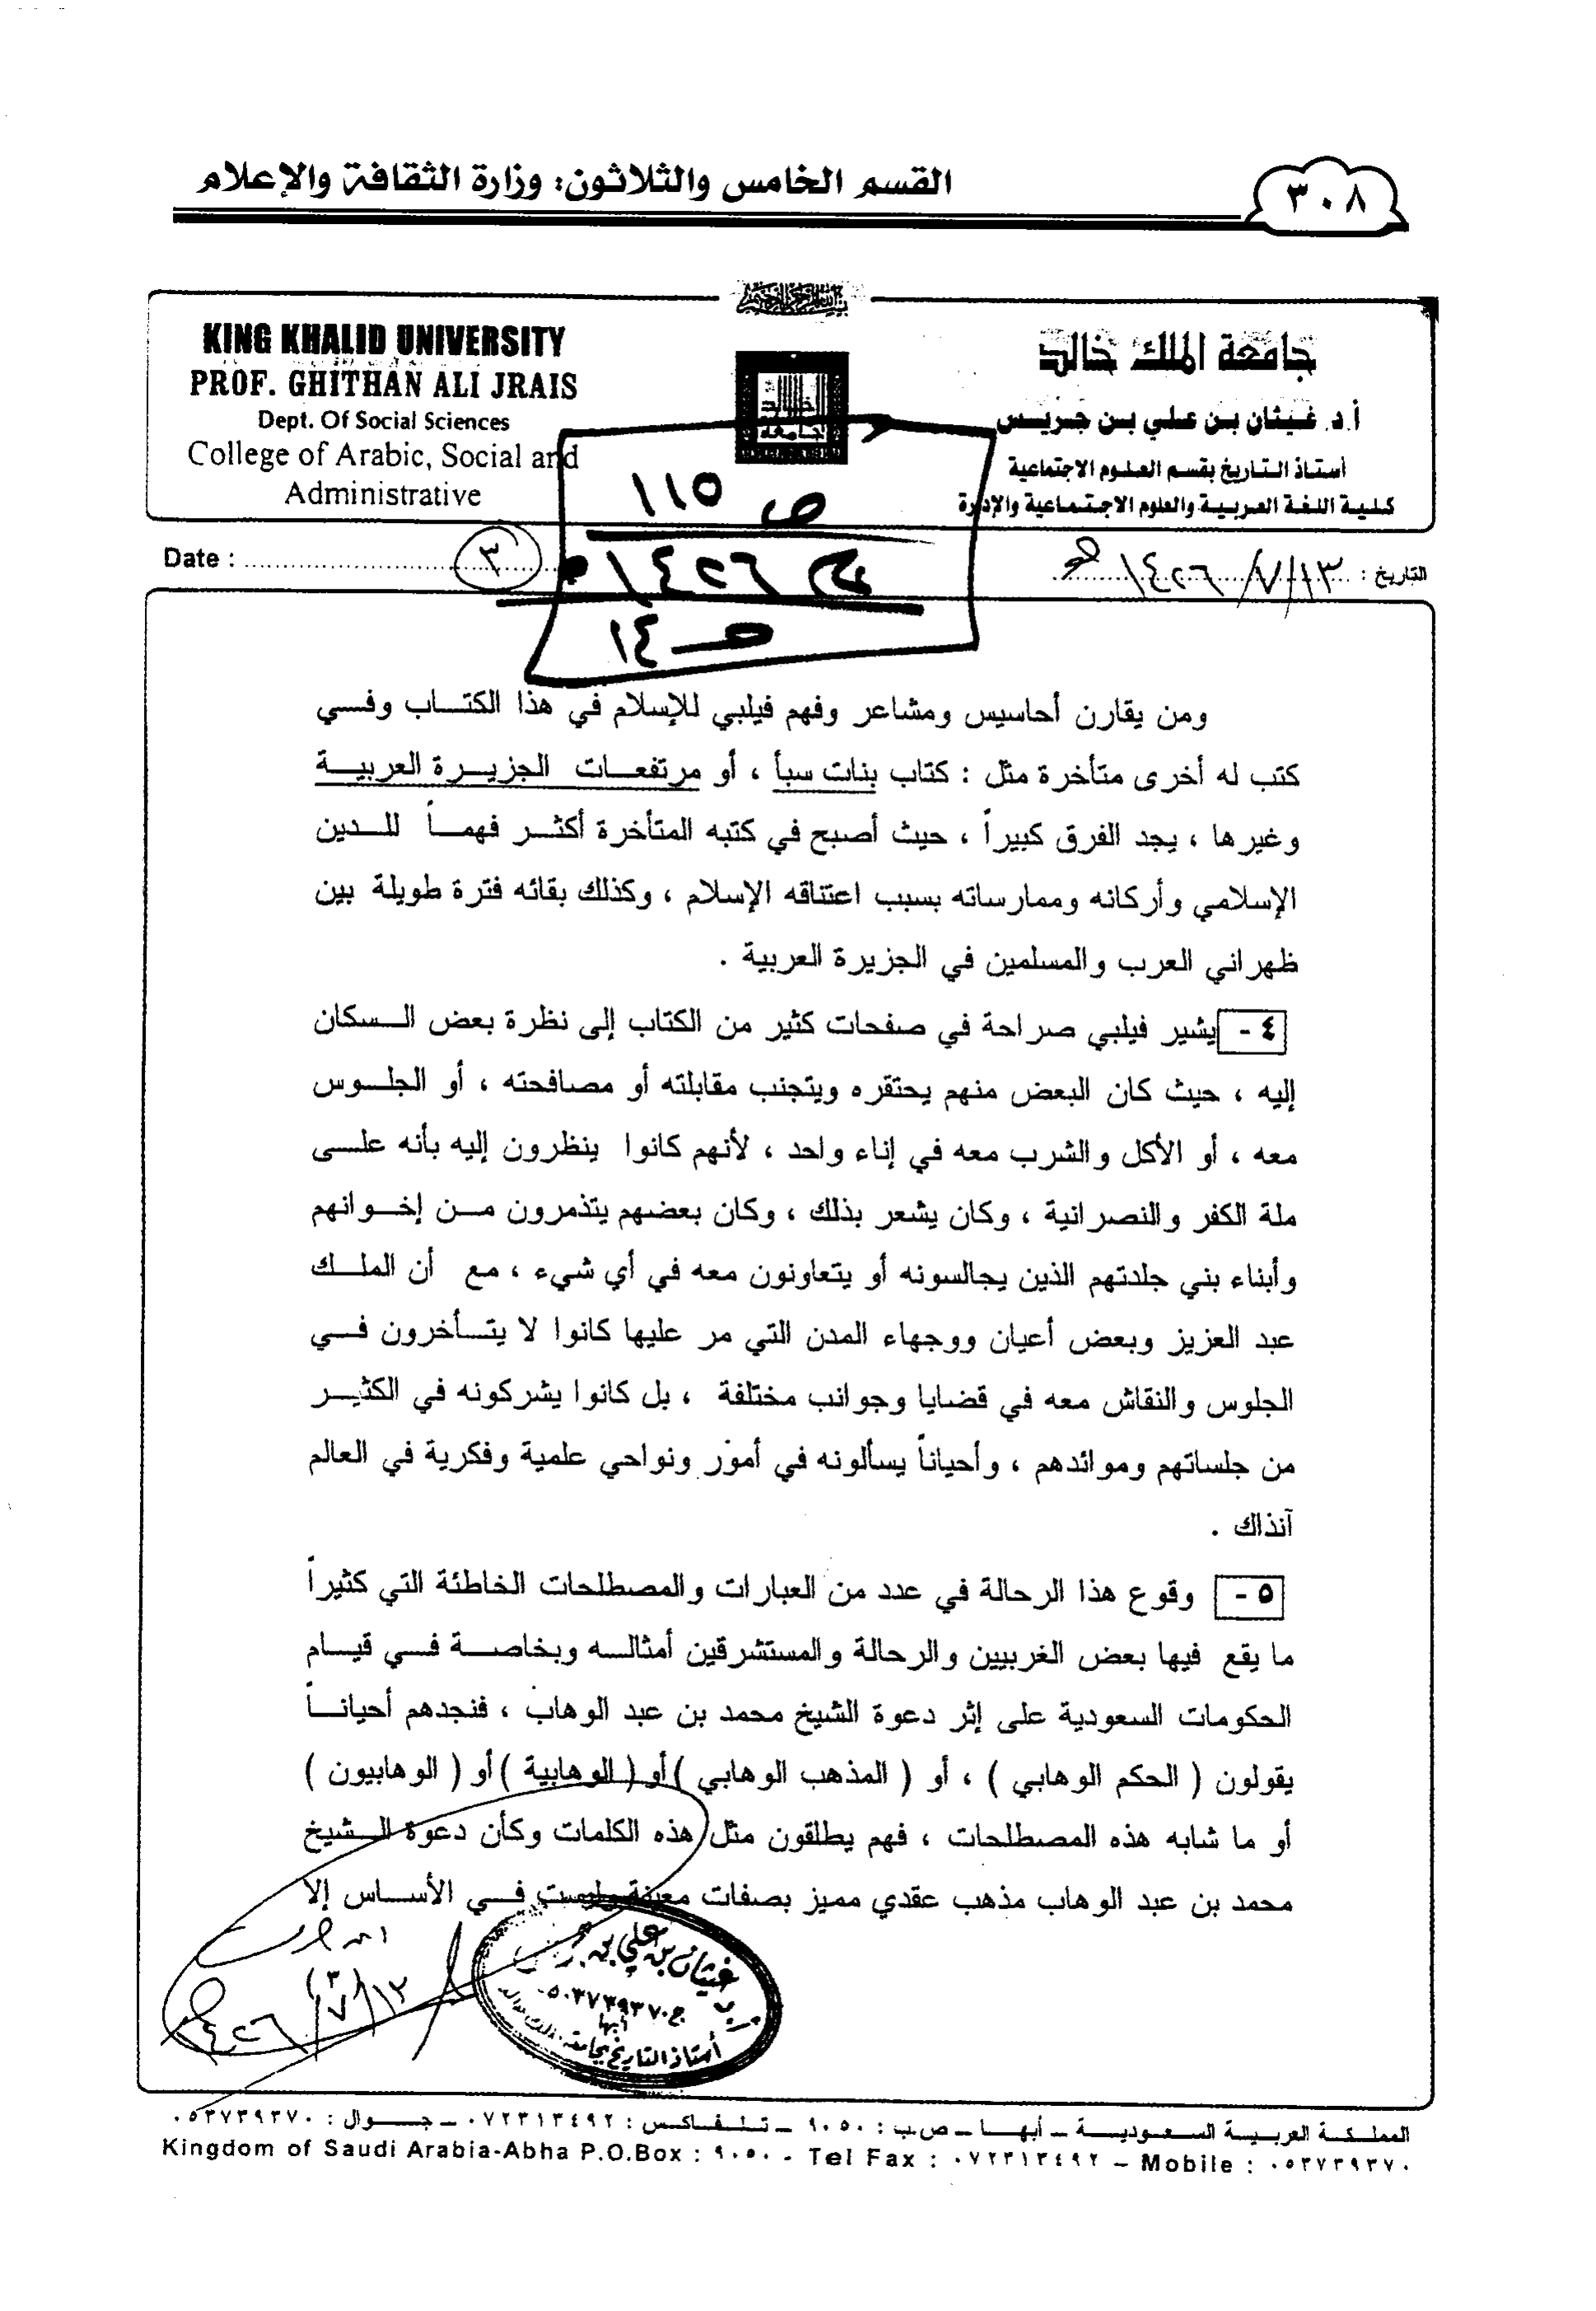 ٣٠٨
القسم الخامس والثلاثون: وزارة الثقافة والإعلام
بسم الله الرحمن الرحيم
جامعة الملك خالد
أ.د. غيثان بن علي بن جريس
أستاذ التاريخ بقسم العلوم الاجتماعية
كلية اللغة العربية والعلوم الاجتماعية والإدارة
KING KHALID UNIVERSITY
PROF. GHITHAN ALI JRAIS
Dept. Of Social Sciences
College of Arabic, Social and
Administrative
ص ١١٥
١٤٢٦
١٤
التاريخ : ١٣/٧/١٤٢٦هـ
Date : (٣)
ومن يقارن أحاسيس ومشاعر وفهم فيلبي للإسلام في هذا الكتاب وفي
كتب له أخرى متأخرة مثل : كتاب بنات سبأ ، أو مرتفعات الجزيرة العربية
وغيرها ، يجد الفرق كبيراً ، حيث أصبح في كتبه المتأخرة أكثر فهماً للدين
الإسلامي وأركانه وممارساته بسبب اعتناقه الإسلام ، وكذلك بقائه فترة طويلة بين
ظهراني العرب والمسلمين في الجزيرة العربية .
٤ - يشير فيلبي صراحة في صفحات كثير من الكتاب إلى نظرة بعض السكان
إليه ، حيث كان البعض منهم يحتقره ويتجنب مقابلته أو مصافحته ، أو الجلوس
معه ، أو الأكل والشرب معه في إناء واحد ، لأنهم كانوا ينظرون إليه بأنه على
ملة الكفر والنصرانية ، وكان يشعر بذلك ، وكان بعضهم يتذمرون من إخوانهم
وأبناء بني جلدتهم الذين يجالسونه أو يتعاونون معه في أي شيء ، مع أن الملك
عبد العزيز وبعض أعيان ووجهاء المدن التي مر عليها كانوا لا يتأخرون في
الجلوس والنقاش معه في قضايا وجوانب مختلفة ، بل كانوا يشركونه في الكثير
من جلساتهم وموائدهم ، وأحياناً يسألونه في أمور ونواحي علمية وفكرية في العالم
آنذاك .
٥ - وقوع هذا الرحالة في عدد من العبارات والمصطلحات الخاطئة التي كثيراً
ما يقع فيها بعض الغربيين والرحالة والمستشرقين أمثاله وبخاصة في قيام
الحكومات السعودية على إثر دعوة الشيخ محمد بن عبد الوهاب ، فنجدهم أحياناً
يقولون ( الحكم الوهابي ) ، أو ( المذهب الوهابي ) أو ( الوهابية ) أو ( الوهابيون )
أو ما شابه هذه المصطلحات ، فهم يطلقون مثل هذه الكلمات وكأن دعوة الشيخ
محمد بن عبد الوهاب مذهب عقدي مميز بصفات معينة وليست في الأساس إلا
(٣)
١٣/٧/١٤٢٦هـ
غيثان بن علي بن جريس
ج ٠٥٠٣٧٣٩٣٧٠
أبها
أستاذ التاريخ بجامعة الملك خالد
المملكة العربية السعودية – أبها – ص.ب : ٩٠٥٠ – تلفاكس : ٠٧٢٣١٣٤٩٢ – جوال : ٠٥٣٧٣٩٣٧٠
Kingdom of Saudi Arabia-Abha P.O.Box : ٩٠٥٠ - Tel Fax : ٠٧٢٣١٣٤٩٢ – Mobile : ٠٥٣٧٣٩٣٧٠